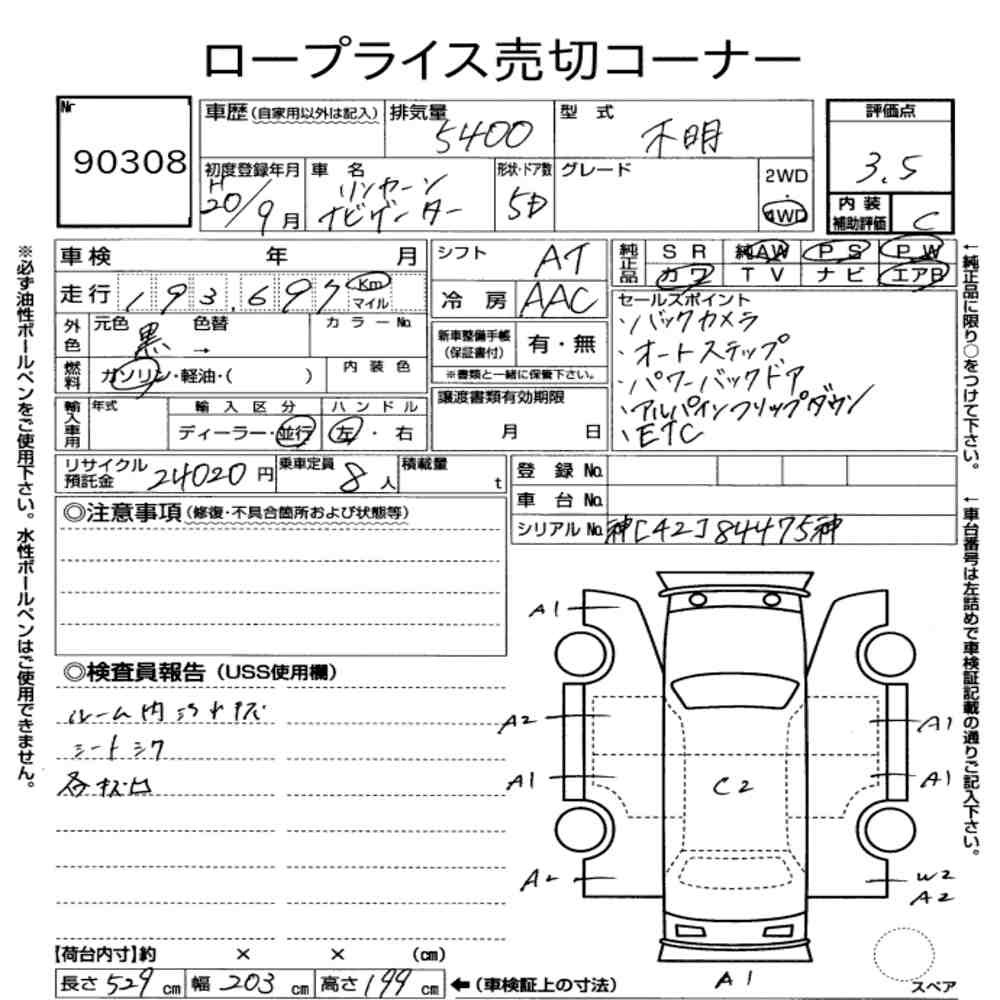 ロープライス売切コーナー
Nr
90308
車歴(自家用以外は記入) 排気量 5400 型 式 不明
評価点
3.5
初度登録年月 H20/9月 車 名 リンカーン ナビゲーター 形状・ドア数 5D グレード 2WD・4WD
内 装 補助評価 C
車検 年 月
シフト AT
純正品 SR 純AW PS PW
カワ TV ナビ エアB
走行 193,697 Km マイル
冷 房 AAC
セールスポイント
・バックカメラ
・オートステップ
・パワーバックドア
・アルパインフリップダウン
・ETC
外色 元色 黒 → 色替 カラーNo.
新車整備手帳 (保証書付) 有・無
※書類と一緒に保管下さい。
燃料 ガソリン・軽油・( ) 内 装 色
譲渡書類有効期限
月 日
輸入車用 年式 輸 入 区 分 ハ ン ド ル
ディーラー・並行 左・右
リサイクル預託金 24020円 乗車定員 8人 積載量 t
登 録 No.
車 台 No.
シリアル No. 神[42]84475神
◎注意事項(修復・不具合箇所および状態等)
◎検査員報告(USS使用欄)
ルーム内汚レキズ
シートシワ
各キズ凹
A1
A2
A1
A2
C2
A1
A1
W2
A2
A1
スペア
【荷台内寸】約 × × (cm)
長さ 529 cm 幅 203 cm 高さ 199 cm ←(車検証上の寸法)
※必ず油性ボールペンをご使用下さい。水性ボールペンはご使用できません。
←純正品に限り○をつけて下さい。
←車台番号は左詰めで車検証記載の通りご記入下さい。